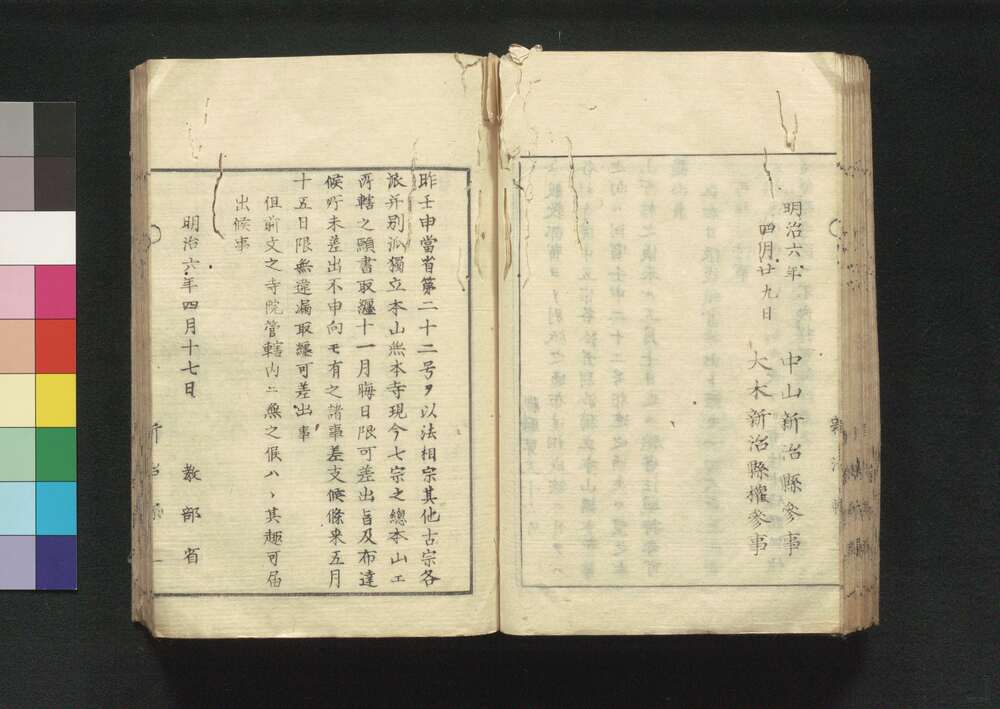 明治六年
四月廿九日
中山新治縣參事
大木新治縣權參事
昨壬申當省第二十二号ヲ以法相宗其他古宗各
派并別派獨立本山無本寺現今七宗之總本山エ
所轄之願書取纏十一月晦日限可差出旨及布達
候處未差出不申向モ有之諸事差支候條来五月
十五日限無遺漏取纏可差出事
但前文之寺院管轄内ニ無之候ハヽ其趣可届
出候事
明治六年四月十七日
教部省